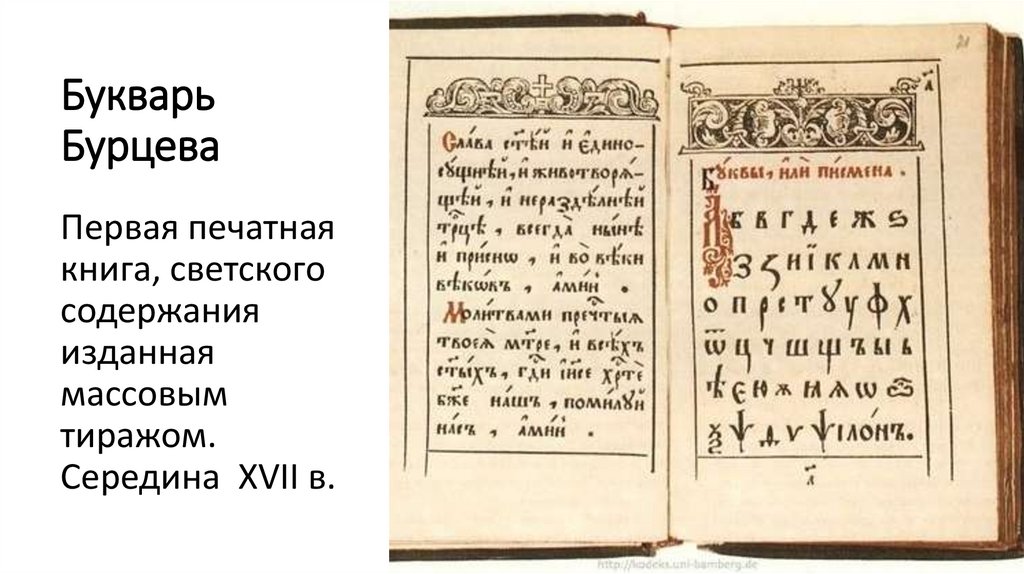 Букварь
Бурцева
Первая печатная
книга, светского
содержания
изданная
массовым
тиражом.
Середина XVII в.
Сла́ва ст҃ѣ́й и҆ є҆дино-
сꙋ́щнѣй, и҆ животворѧ́-
щѣй, и҆ нераздѣ́лнѣй
трⷪ҇цѣ, всегда̀ ны́нѣ
и҆ при́снѡ, и҆ во вѣ́ки
вѣкѡ́въ, а҆ми́нь.
Моли́твами пречⷭ҇тыѧ
твоеѧ̀ мт҃ре, и҆ всѣ́хъ
ст҃ы́хъ, гдⷭ҇и і҆и҃се хрⷭ҇тѐ
бж҃е на́шъ, поми́лꙋй
на́съ, а҆ми́нь.
21
а҃
Бꙋ́квы, и҆лѝ пи́смена.
А Б В Г Д Е Ж Ѕ
З Ꙁ И Ї К Л М Н
О П Р С Т Ꙋ У Ф Х
Ѿ Ц Ч Ш Щ Ъ Ы Ь
Ѣ Є Ю Ѫ Ꙗ Ѧ Ѡ
Ѯ Ѱ Ѳ Ѵ ѰІЛО́НЪ.
а҃
http://kodeks.uni-bamberg.de